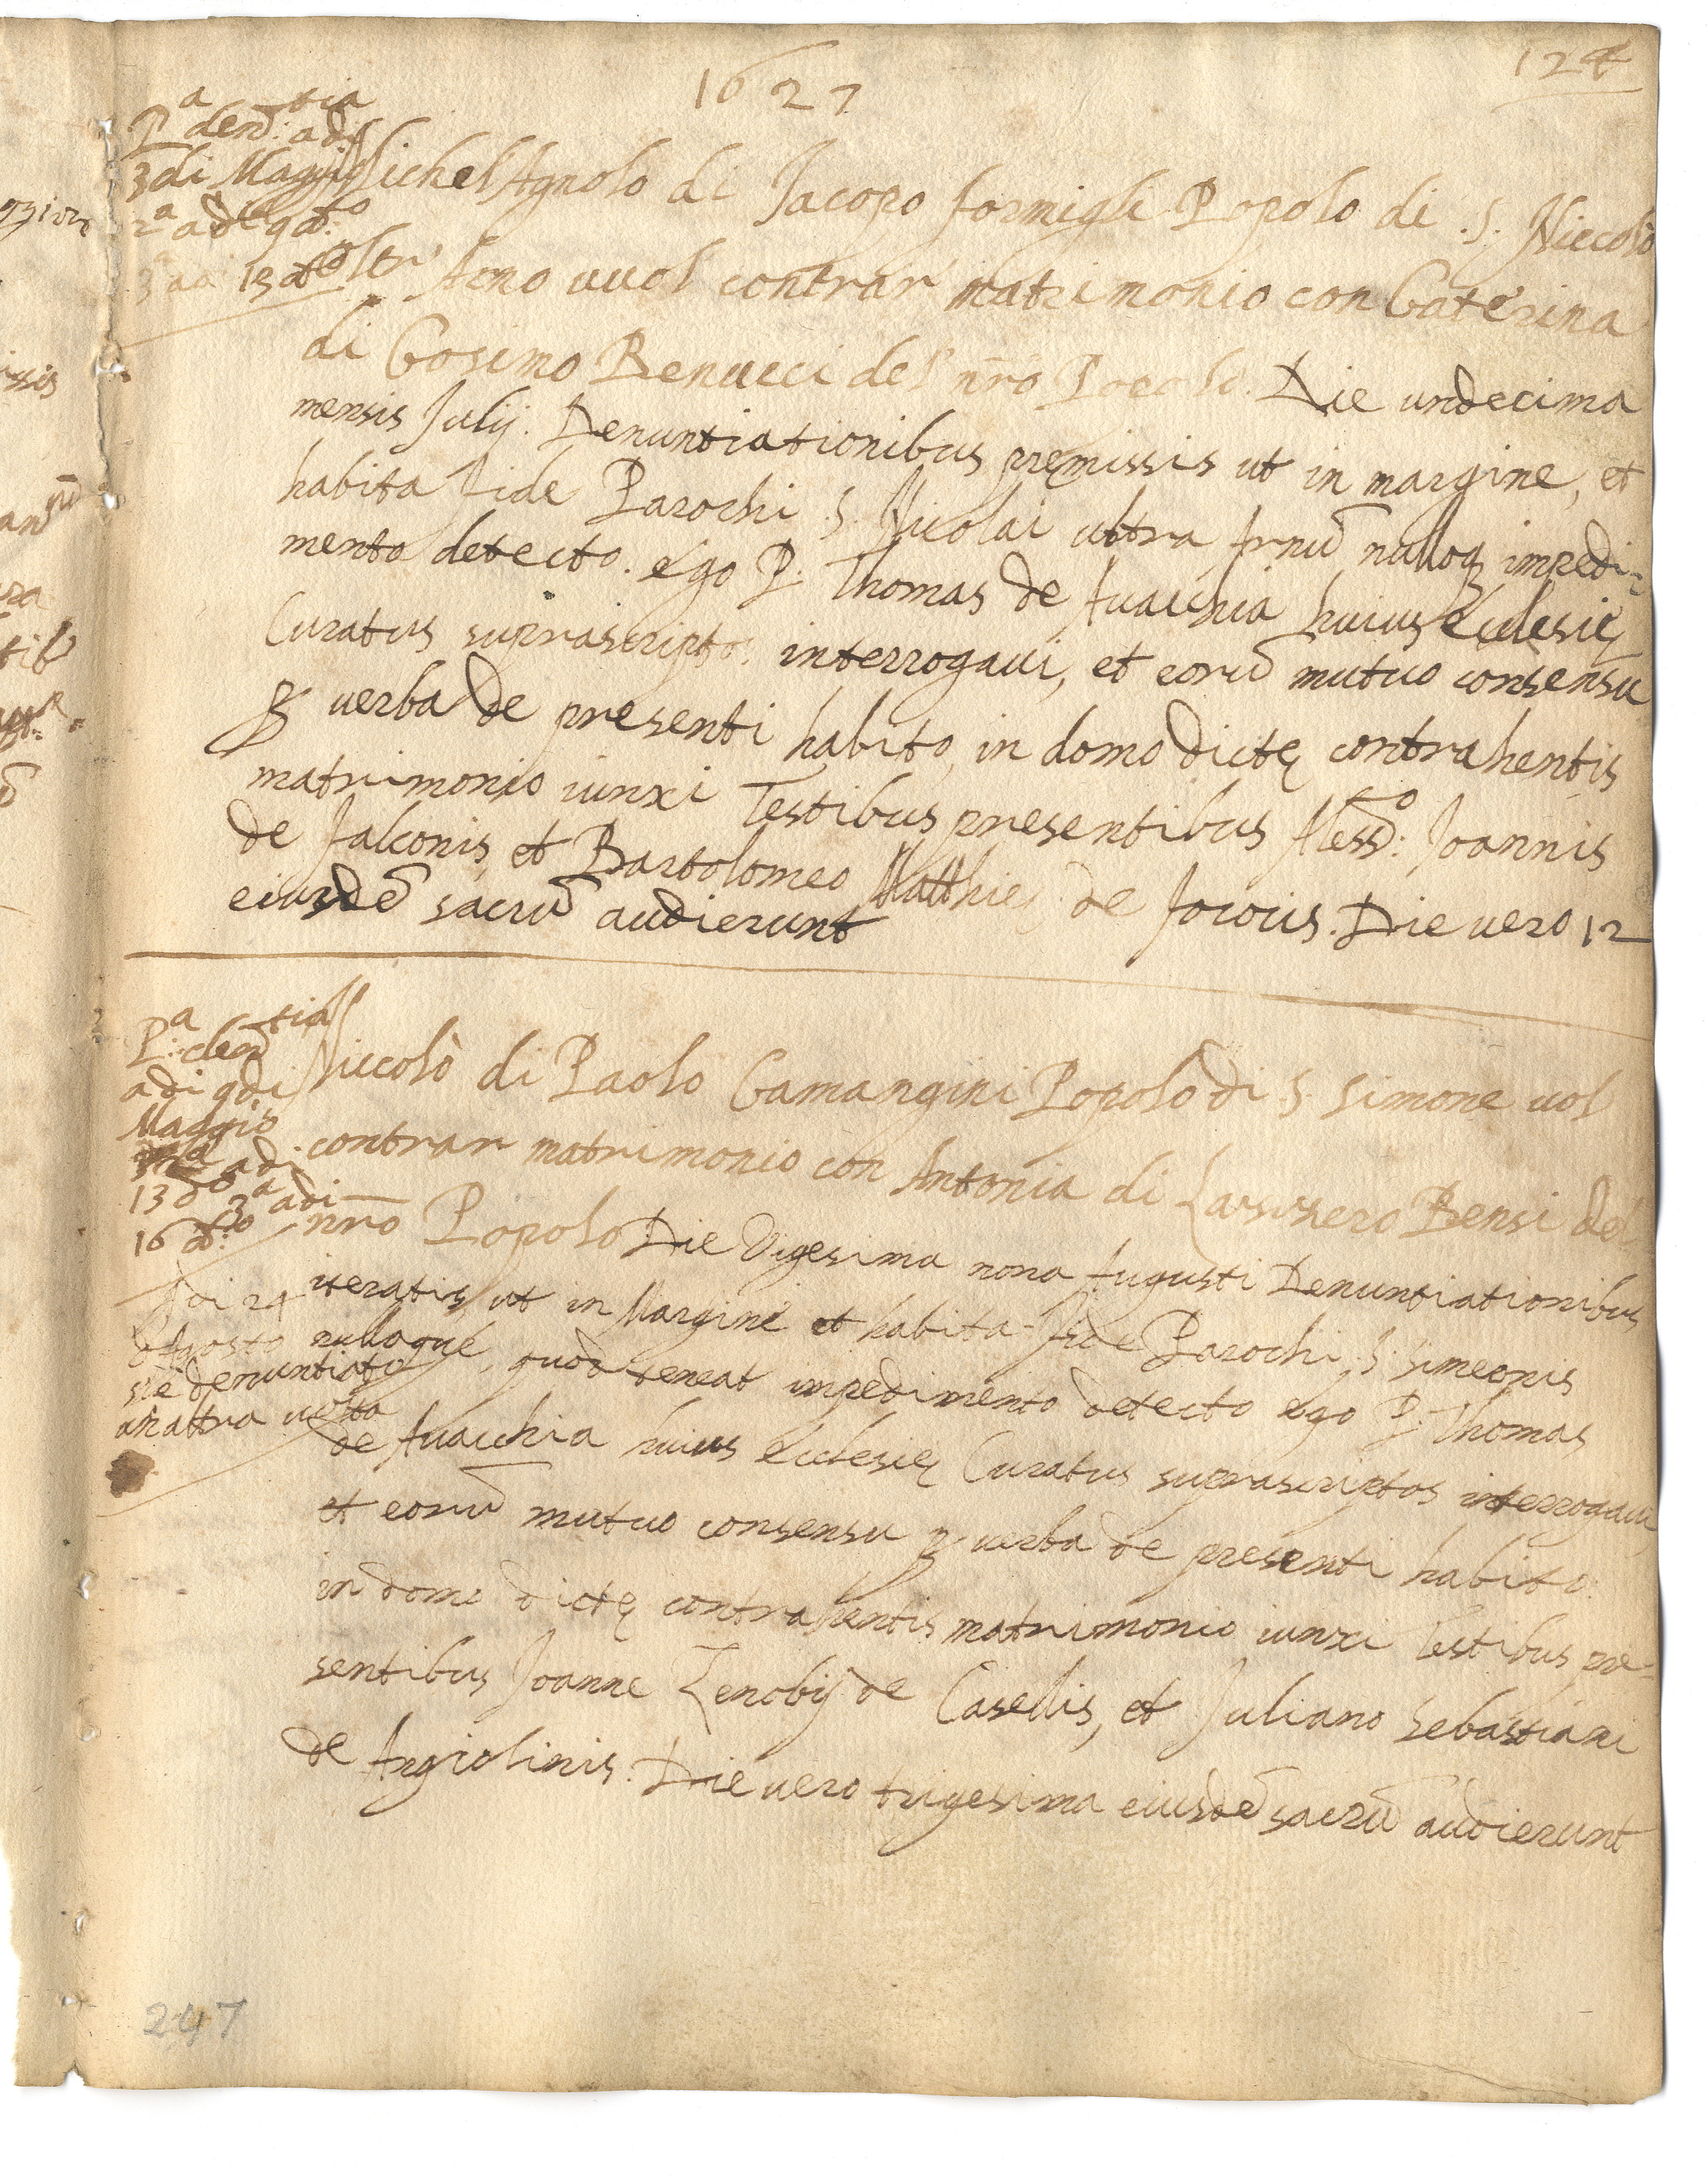 1627
124
Pa denztia adi
3 di Maggio
2a adi 9 do
3a adi 13 do
Michel Agnolo di Jacopo formigli Popolo di .S. Niccolò
oltr' Arno vuol contrar matrimonio con Caterina
di Cosimo Benucci del nro Popolo. Die undecima
mensis Julij. Denuntiationibus premissis ut in margine, et
habita fide Parochi .S. Nicolai ultra Arnū nulloq impedi-
mento detecto. ego P. Thomas de Auacchia huius Ecclesię
Curatus suprascriptos interrogaui, et eorū mutuo consensu
p verba de presenti habito, in domo dictę contrahentis
matrimonio iunxi Testibus presentibus Alessd.ro Joannis
de falconis, et Bartolomeo Matthię de
Die vero 12
eiusdē sacrū audierunt
P.a denztia
adi 9 di
Maggio
2a adi
13 do 3a adi
16 do
Niccolò di Paolo Camangini Popolo di S. Simone vol
contrar matrimonio con Antonia di Bensi del
nro Popolo Die Vigesima nona Augusti Denuntiationibus
Adi 24
d'Agosto
si è denuntiato
un altra uolta
iteratis, ut in Margine et habita fide Parochi .S. simeonis
nulloque, quod teneat impedimento detecto ego P. Thomas
de Auacchia huius Ecclesię Curatus suprascriptos interrogaui
et eorū mutuo consensu p verba de presenti habito
in domo dictę contrahentis matrimonio iunxi Testibus pre-
sentibus Joanne Zenobij de Casellis, et Juliano Sebastiani
de Angiolinis. Die vero trigesima eiusdē sacrū audierunt
247